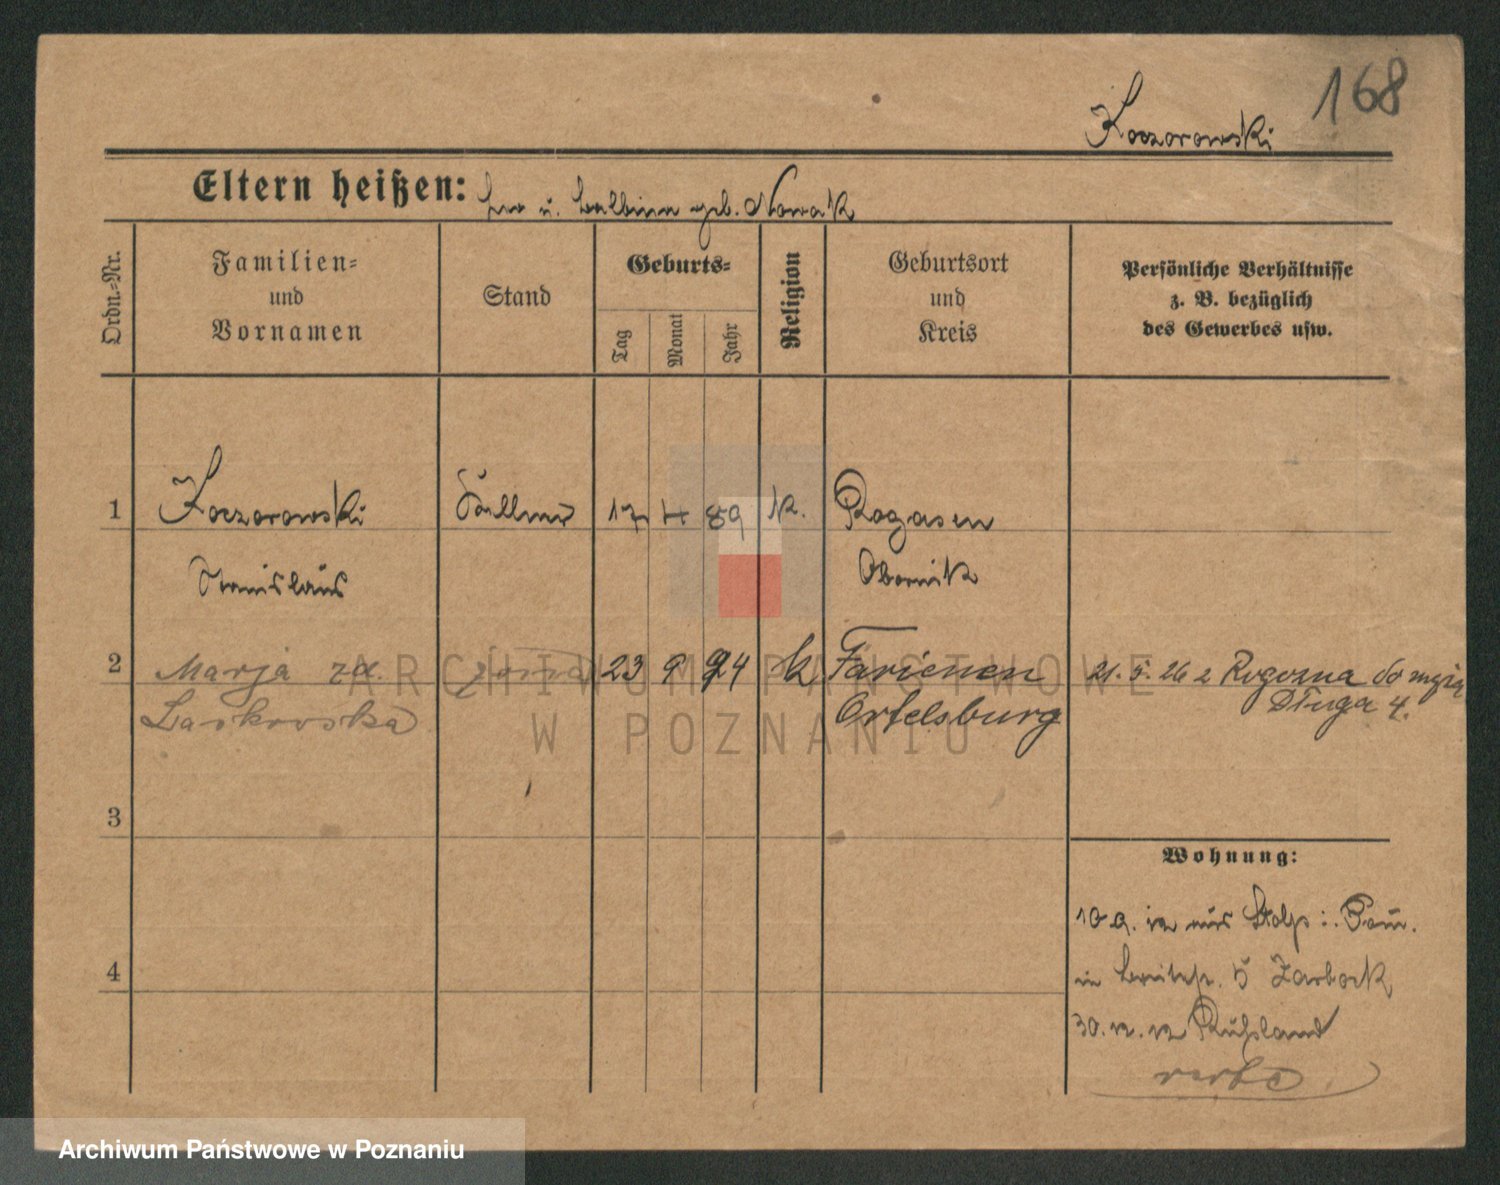 168
Koczorowski
Eltern heißen: Leo u. Balbina geb. Nowak
Ordn.-Nr.
Familien-
und
Vornamen
Stand
Geburts-
Tag
Monat
Jahr
Religion
Geburtsort
und
Kreis
Persönliche Verhältnisse
z. B. bezüglich
des Gewerbes usw.
1 Koczorowski 17 4 89 k. Rogasen
Stanislaus Obornik
2 Marja 23 9 94 k Farienen 21. 5. 26 z Rogozna do
Laskowska Ortelsburg Długa 4.
ARCHIWUM PAŃSTWOWE
W POZNANIU
3
Wohnung:
10. 9. 12 aus Stolp i. Pom.
4
in 5 Zarbock
30. 12. 12 Rußland
Archiwum Państwowe w Poznaniu